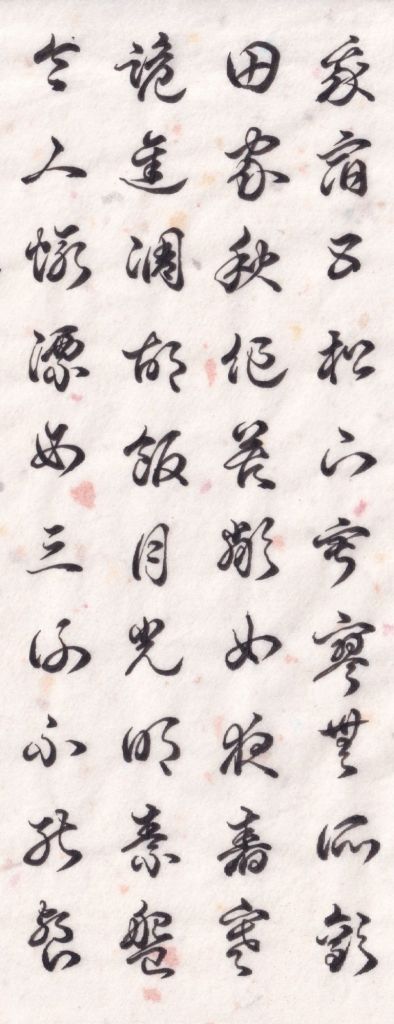 我宿五松下寂寥無所歡
田家秋作苦鄰女夜舂寒
跪進凋胡飯月光明素盤
令人慚漂母三謝不能餐